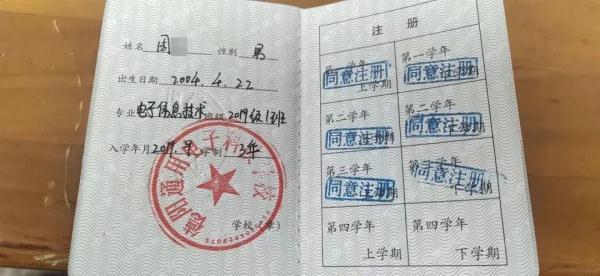 姓名 周 性别 男
出生日期 2004.4.22
专业 电子信息技术 班级 2019级1班
入学年月 2019.9 学制 3年
学校(章)
德阳通用电子科
注册
第一学年 上学期 同意注册
第一学年 同意注册
第二学年 同意注册
第二学年 同意注册
第三学年 同意注册
同意注册
第四学年 上学期
第四学年 下学期